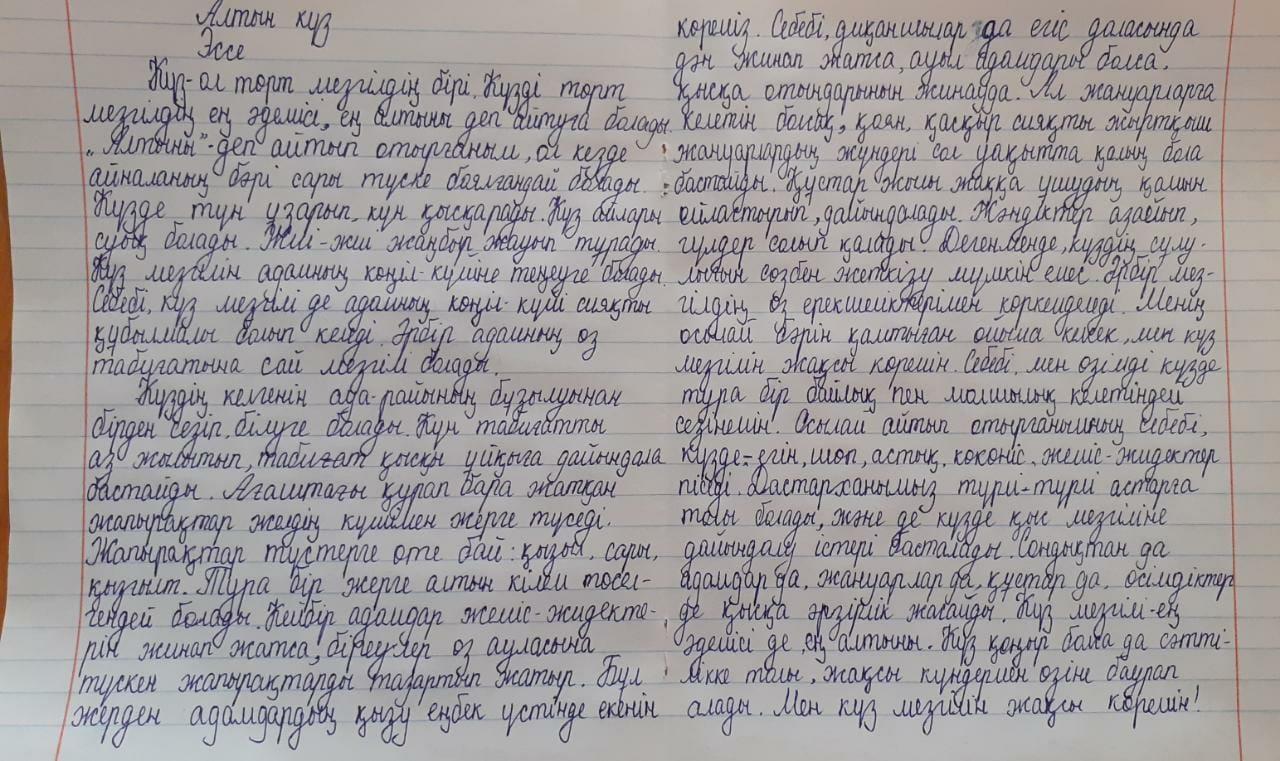 Алтын күз
Эссе
Күз-ол төрт мезгілдің бірі. Күзді төрт
мезгілдің ең әдемісі, ең алтыны деп айтуға болады.
„Алтыны"-деп айтып отырғаным, ол кезде
айналаның бәрі сары түске боялғандай болады.
Күзде түн ұзарып, күн қысқарады. Күз айлары
суық болады. Жиі-жиі жаңбыр жауып тұрады.
Күз мезгілін адамның көңіл-күйіне теңеуге болады.
Себебі, күз мезгілі де адамның көңіл-күйі сияқты
құбылмалы болып келеді. Әрбір адамның өз
табиғатына сай мезгілі болады.
Күздің келгенін ауа-райының бұзылуынан
бірден сезіп, білуге болады. Күн табиғатты
аз жылытып, табиғат қысқы ұйқыға дайындала
бастайды. Ағаштағы қурап бара жатқан
жапырақтар желдің күшімен жерге түседі.
Жапырақтар түстерге өте бай: қызыл, сары,
қызғылт. Тура бір жерге алтын кілем төсел-
гендей болады. Кейбір адамдар жеміс-жидекте-
рін жинап жатса, біреулер өз ауласына
түскен жапырақтарды тазартып жатыр. Бұл
жерден адамдардың қызу еңбек үстінде екенін
көреміз. Себебі, диқаншылар да егіс даласында
дән жинап жатса, ауыл адамдары болса,
қысқа отындарынын жинауда. Ал жануарларға
келетін болсақ, қоян, қасқыр сияқты жыртқыш
жануарлардың жүндері сол уақытта қалың бола
бастайды. Құстар жылы жаққа ұшудың қамын
ойластырып, дайындалады. Жәндіктер азайып,
гүлдер солып қалады. Дегенменде, күздің сұлу-
лығын сөзбен жеткізу мүмкін емес. Әрбір мез-
гілдің өз ерекшеліктерімен көркейделеді. Менің
осылай бәрін қамтыған ойыма келсек, мен күз
мезгілін жақсы көремін. Себебі, мен өзімді күзде
тура бір байлық пен молшылық келетіндей
сезінемін. Осылай айтып отырғанымның себебі,
күзде-егін, шөп, астық, көкөніс, жеміс-жидектер
піседі. Дастарханымыз түрлі-түрлі астарға
толы болады, және де күзде қыс мезгіліне
дайындалу істері басталады. Сондықтан да
адамдар да, жануарлар да, құстар да, өсімдіктер
де қысқа әрзірлік жасайды. Күз мезгілі-ең
әдемісі де, ең алтыны. Күз қоңыр болса да сәтті-
лікке толы, жақсы күндермен өзіне баурап
алады. Мен күз мезгілін жақсы көремін!